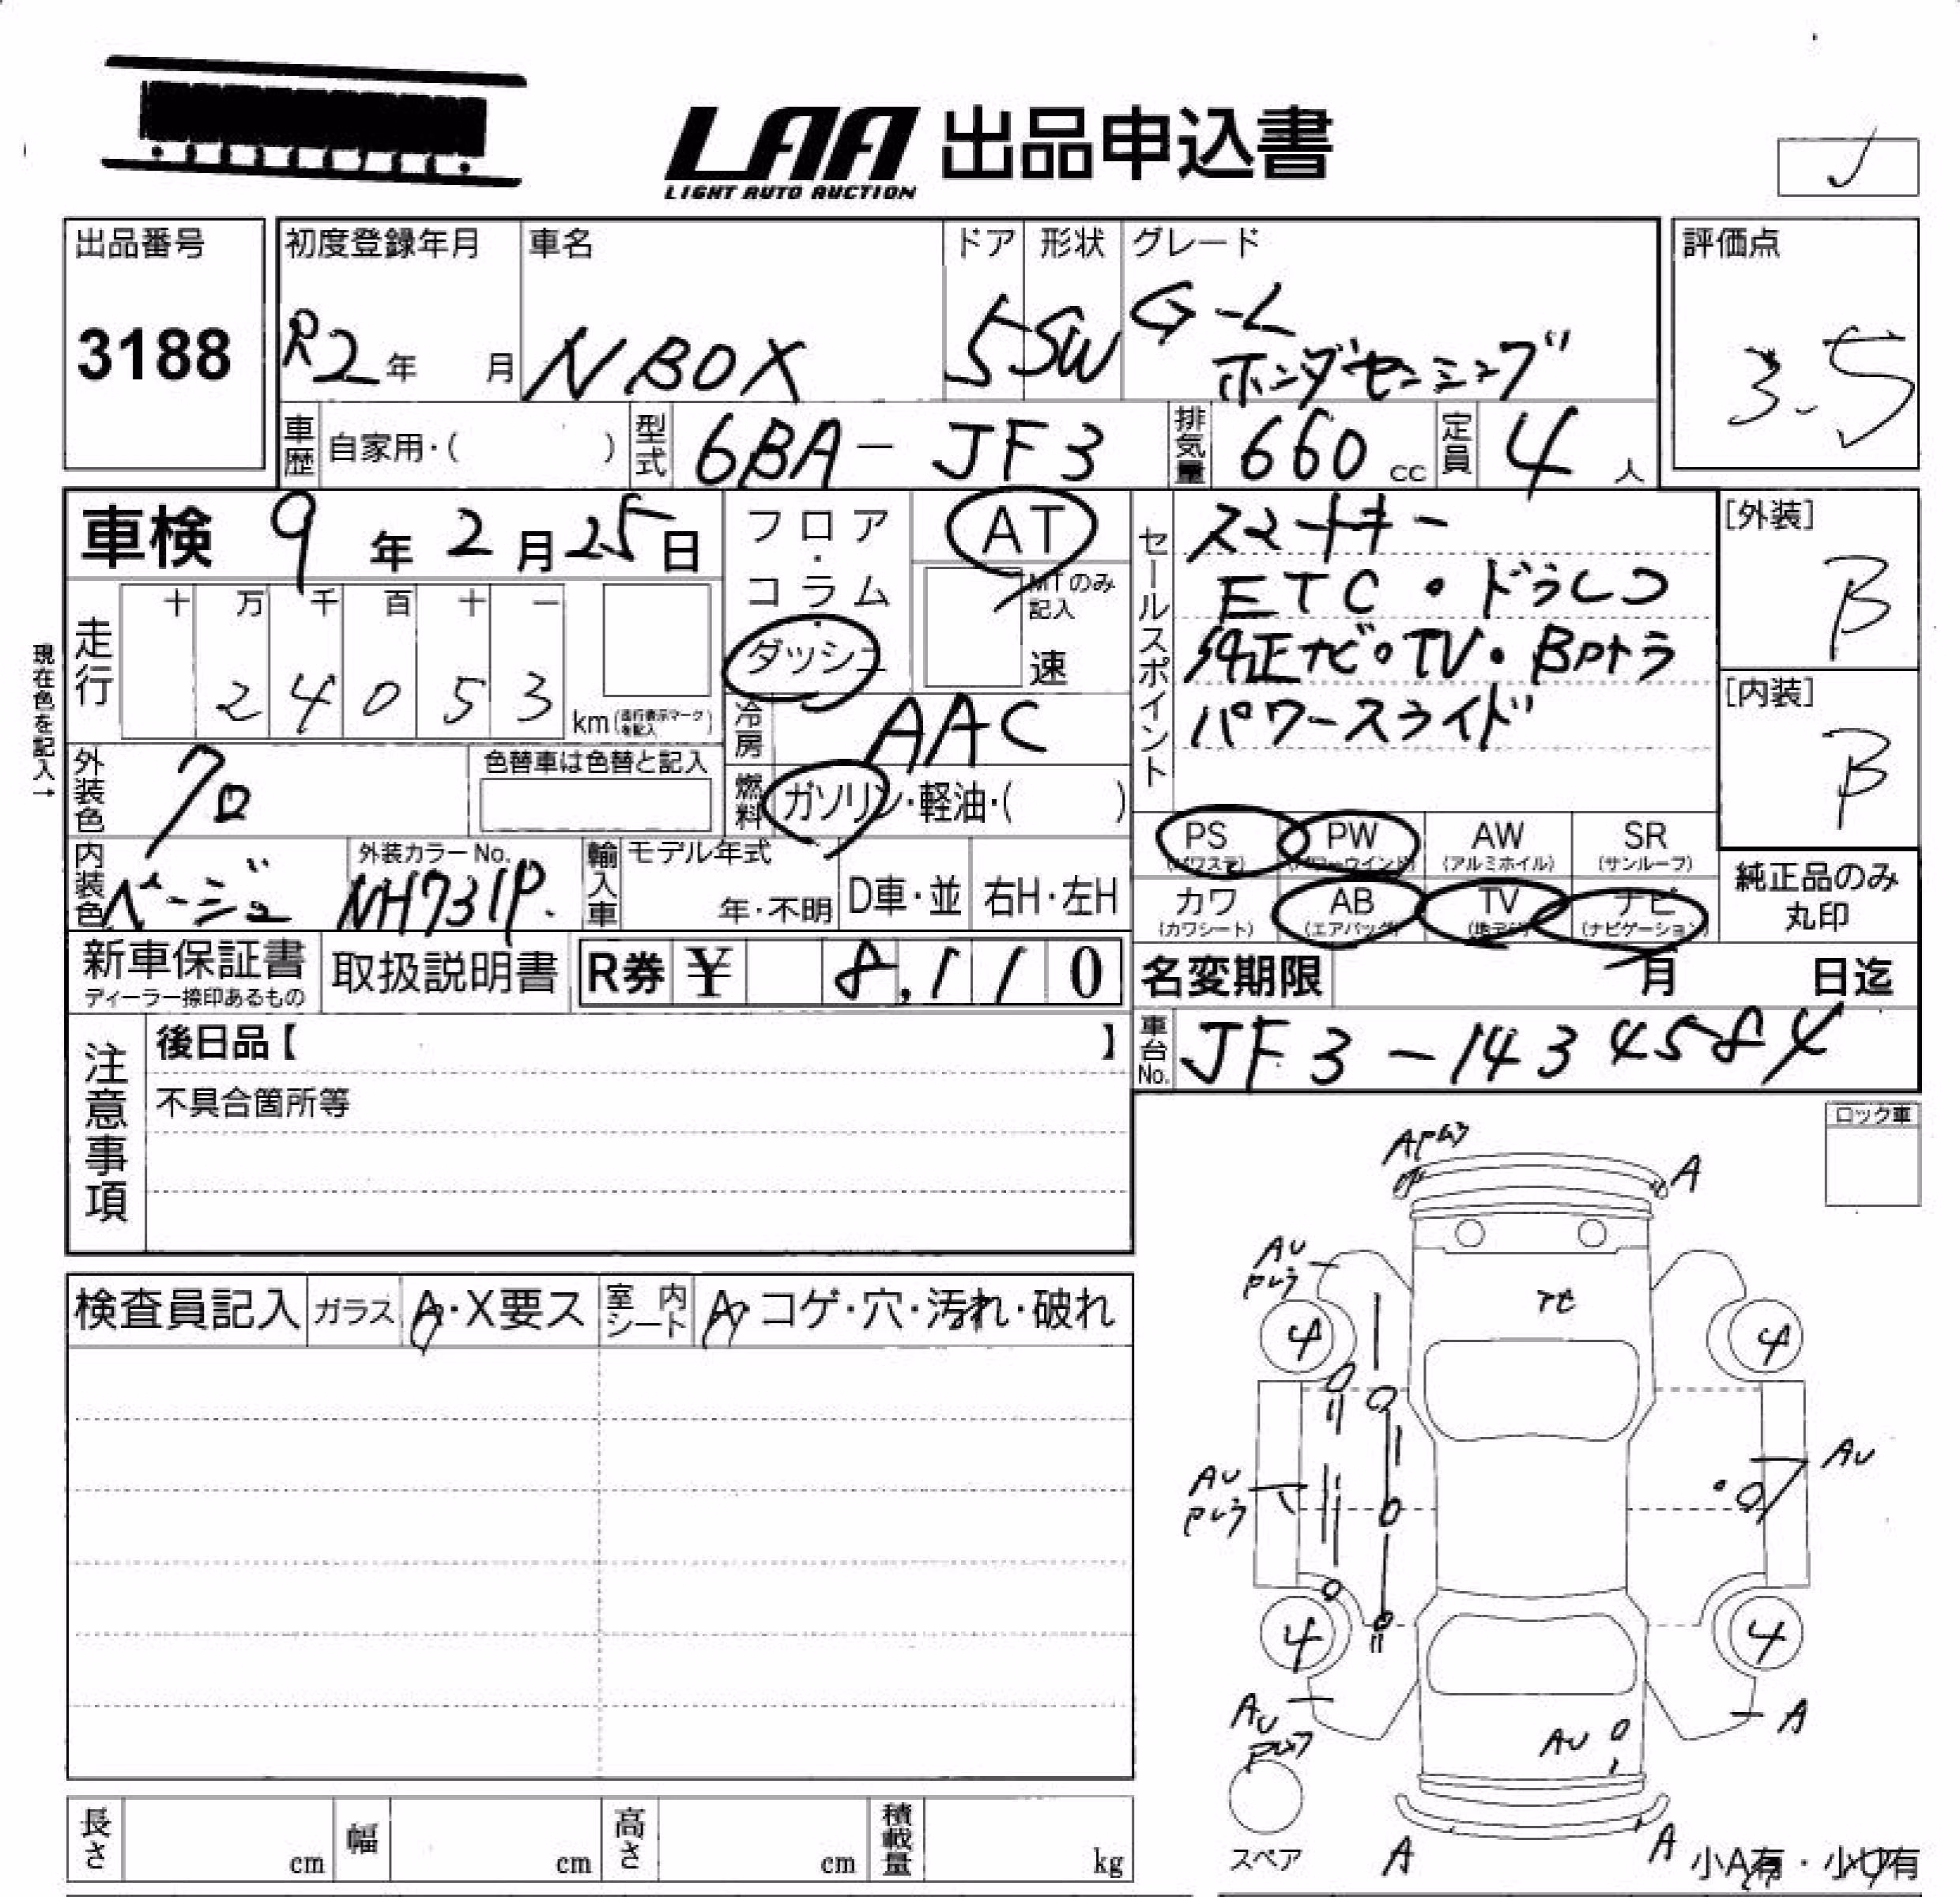 LAA 出品申込書
LIGHT AUTO AUCTION
出品番号
3188
初度登録年月
R2年 月
車名
N BOX
ドア
5
形状
SW
グレード
G-L
ホンダセンシング
評価点
3.5
車歴 自家用・( )
型式 6BA-JF3
排気量 660 cc
定員 4 人
車検 9年2月25日
現在色を記入→
走行
十 万 千 百 十 一
2 4 0 5 3
km (走行表示マークを記入)
フロア・コラム・ダッシュ
AT
MTのみ記入
速
冷房 AAC
燃料 ガソリン・軽油・( )
セールスポイント
スマートキー
ETC・ドラレコ
純正ナビ・TV・Bカメラ
パワースライド
[外装]
B
[内装]
B
外装色 クロ
色替車は色替と記入
内装色 ベージュ
外装カラーNo.
NH731P.
輸入車
モデル年式
年・不明
D車・並
右H・左H
PS (パワステ)
PW (パワーウインド)
AW (アルミホイル)
SR (サンルーフ)
カワ (カワシート)
AB (エアバッグ)
TV (地デジ)
ナビ (ナビゲーション)
純正品のみ
丸印
新車保証書
ディーラー捺印あるもの
取扱説明書
R券 ¥ 8,110
名変期限 月 日迄
車台No. JF3-1434584
注意事項
後日品【 】
不具合箇所等
ロック車
検査員記入
ガラス A・X要ス
室内シート A・コゲ・穴・汚れ・破れ
A
AU
4
4
AU
AU
4
4
AU
A
AU
スペア
A
A
小A有・小U有
長さ cm
幅 cm
高さ cm
積載量 kg